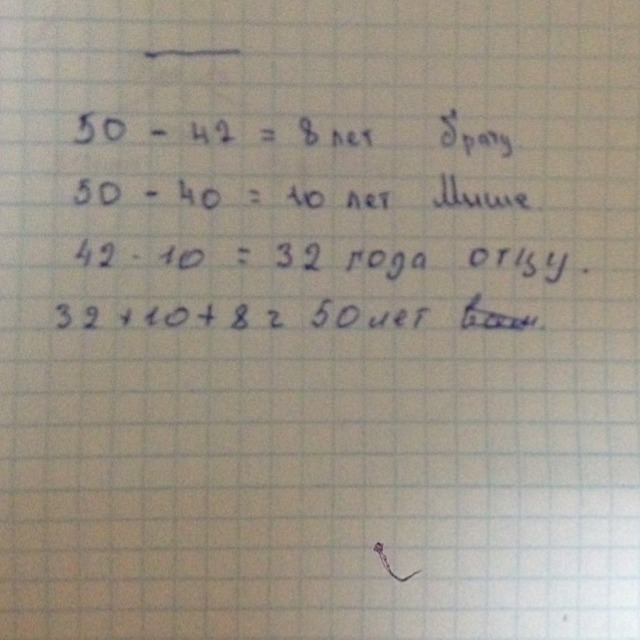 50 - 42 = 8 лет брату.
50 - 40 = 10 лет Мише
42 - 10 = 32 года отцу.
32 + 10 + 8 = 50 лет